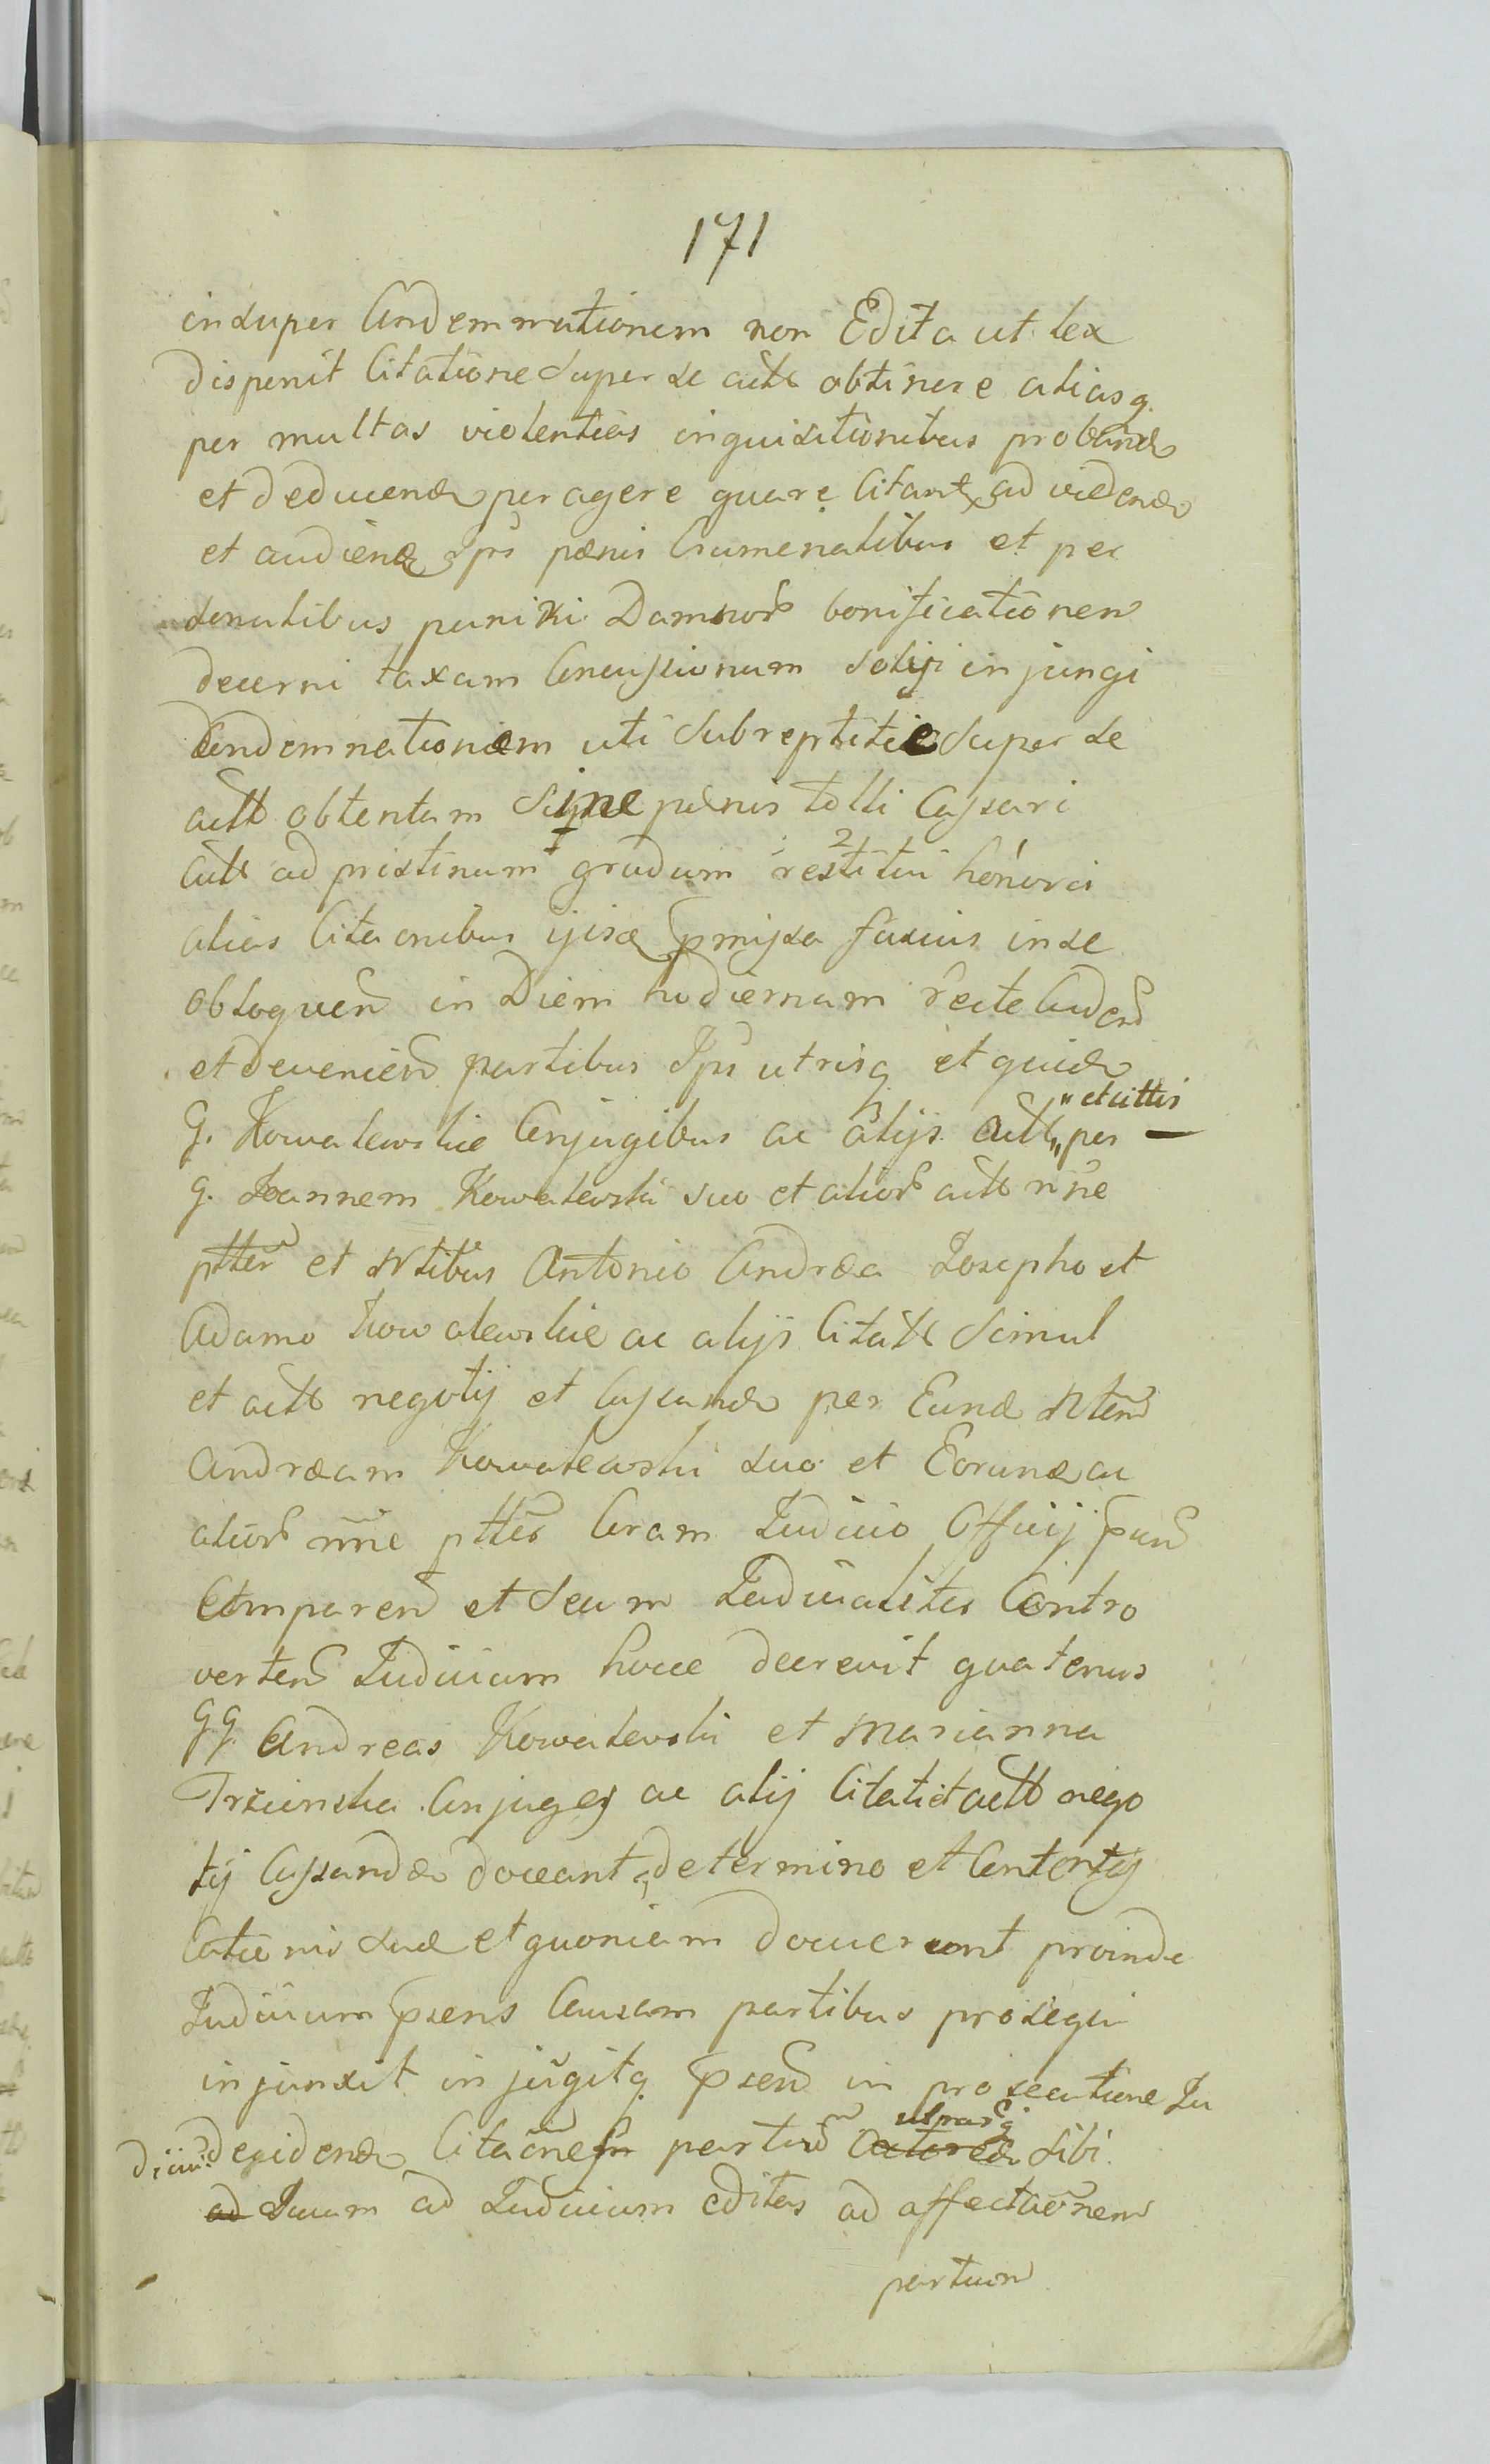 171
insuper Condemnationem non Edita ut lex
disponit Citatione super se actt obtinere aliasq.
per multas violentias inquisitionibus proband
et deducend peragere quare Citant ad videnda
et audiend Ipsi pænis Criminalibus et per
sonalibus puniri Damnor bonificationem
decerni taxam Concussionum solvi injungi
Condemnationem uti subreptitie super se
actt obtentam sine pœnis tolli Cassari
actt ad pristinum gradum restitui honori
alias Citaonibus ijsd pmissa fusius in se
obloquen in Diem hodiernam recte Caden
et devenien partibus Ipsis utrisq et quid
G. Kowalewskie Conjugibus ac alijs actt "et cittis per
G. Joannem Kowalewski suo et alior actt nne
ptter et Ntibus Antonio Andrea Josepho et
Adamo Kowalewskie ac alijs Citatt simul
et actt negotij et Cassand per Eund Nten
Andream Kowalewski suo et Eorund ac
alior nne ptter Coram Judicio Officij psen
Comparen et secum Judicialiter Contro
verten Judicium hocce decrevit quatenus
GG. Andreas Kowalewski et Marianna
Trzcinska Conjuges ac alij Citati et actt nego
tij Cassand doceant de termino et Contentis
Citationis suæ et quoniam docuerunt proinde
Judicium psens Causam partibus prosequi
injunxit injungitq psen in prosecutione Ju
dicium decidend Citaones partium utrarq Actorea sibi
ad suum ad Judicium editas ad affectaonem
partium